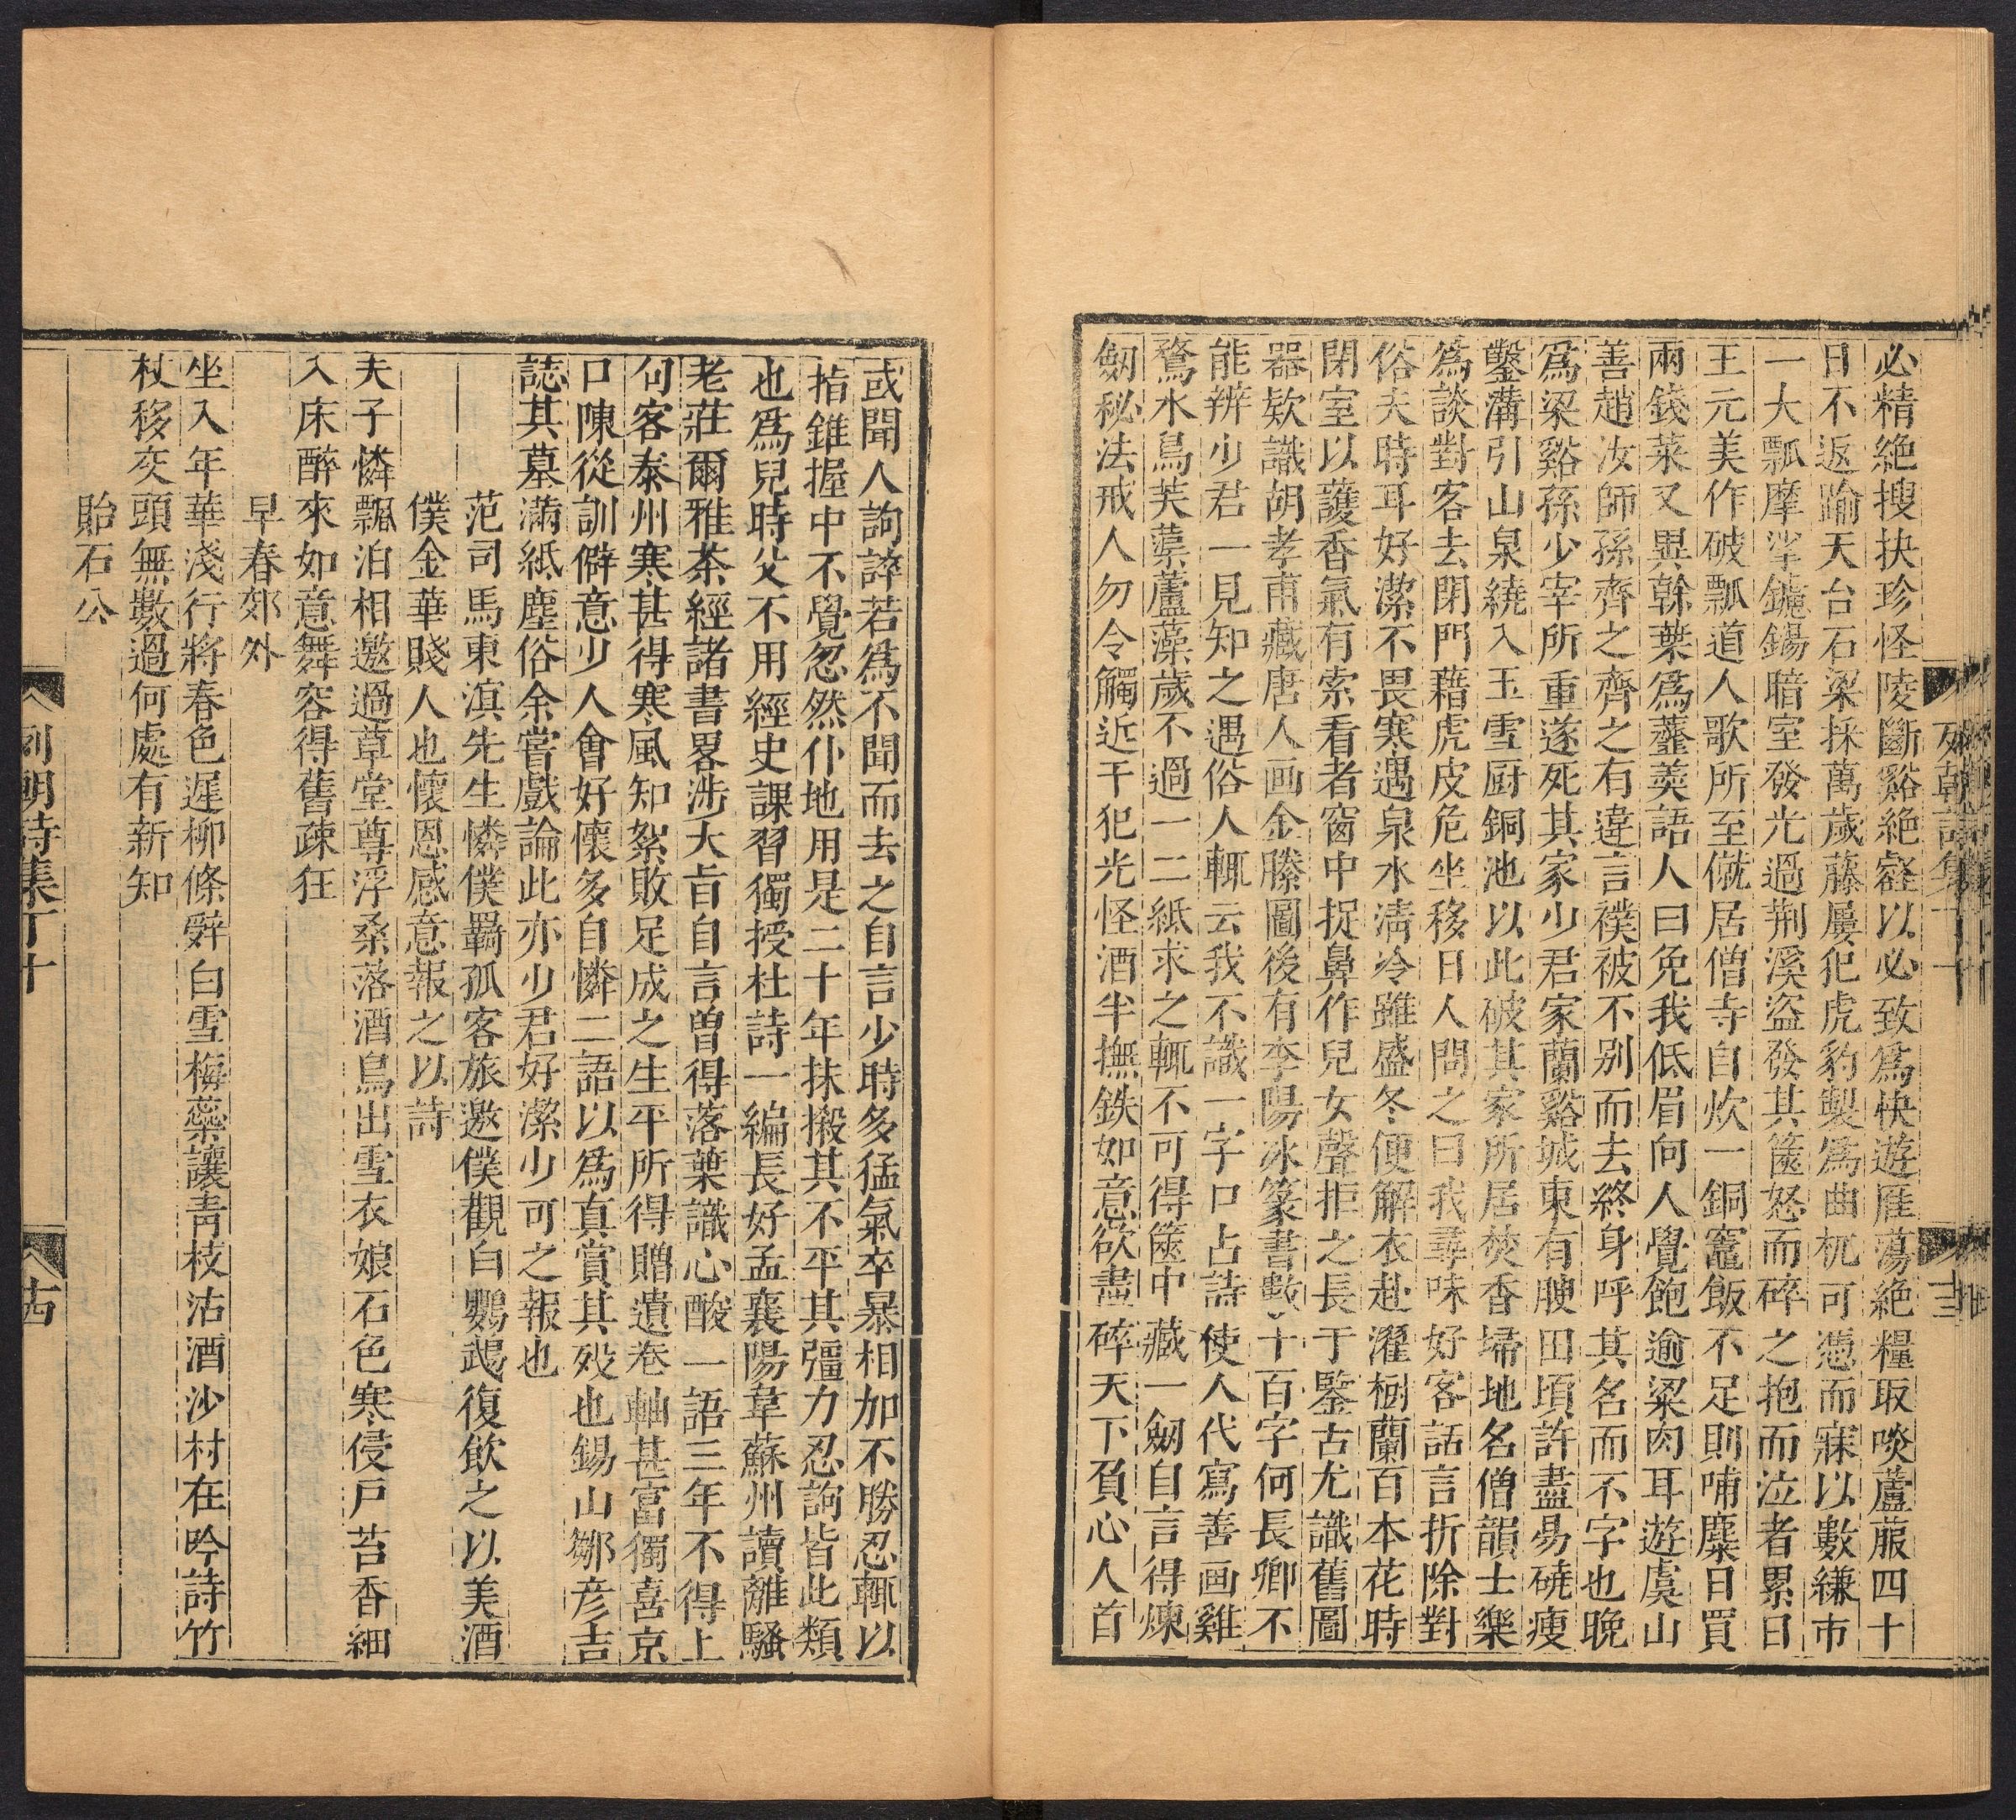 必精絶搜抉珍怪陵斷谿絶壑以必致爲快遊雁蕩絶糧取啖蘆菔四十
日不返踰天台石梁採萬歲藤屢犯虎豹製爲曲杌可憑而寐以數縑市
一大瓢摩挲鏡鍚暗室發光過荆溪盜發其篋怒而碎之抱而泣者累日
王元美作破瓢道人歌所至僦居僧寺自炊一銅竈飯不足則哺麋日買
兩錢菜又異幹葉爲虀羹語人曰免我低眉向人覺飽逾粱肉耳遊虞山
善趙汝師孫齊之齊之有違言襆被不别而去終身呼其名而不字也晚
爲梁谿孫少宰所重遂死其家少君家蘭谿城東有腴田頃許盡易磽瘦
鑿溝引山泉繞入玉雪厨銅池以此破其家所居焚香埽地名僧韻士樂
爲談對客去閉門藉虎皮危坐移日人問之曰我尋味好客話言折除對
俗夫時耳好潔不畏寒遇泉水清冷雖盛冬便解衣赴濯樹蘭百本花時
閉室以護香氣有索看者窗中捉鼻作兒女聲拒之長于鑒古尤識舊圖
器欵識胡孝甫藏唐人画金縢圖後有李陽冰篆書數十百字何長卿不
能辨少君一見知之遇俗人輒云我不識一字口占詩使人代寫善画雞
鶩水鳥芙蕖蘆藻歲不過一二紙求之輒不可得篋中藏一劒自言得煉
劒秘法戒人勿令觸近干犯光怪酒半撫鉄如意欲盡碎天下負心人首
列朝詩集丁十
或聞人詢誶若爲不聞而去之自言少時多猛氣卒暴相加不勝忍輒以
指錐握中不覺忽然仆地用是二十年抹搬其不平其彊力忍詢皆此類
也爲兒時父不用經史課習獨授杜詩一編長好孟襄陽韋蘇州讀離騷
老莊爾雅茶經諸書畧涉大旨自言曽得落葉識心酸一語三年不得上
句客泰州寒甚得寒風知絮敗足成之生平所得贈遺卷軸甚富獨喜京
口陳從訓僻意少人會好懷多自憐二語以爲真賞其歿也錫山鄒彦吉
誌其墓滿紙塵俗余嘗戲論此亦少君好潔少可之報也
范司馬東滇先生憐僕羈孤客旅邀僕觀白鸚鵡復飲之以美酒
僕金華賤人也懷恩感意報之以詩
夫子憐飄泊相邀過草堂尊浮桑落酒鳥出雪衣娘石色寒侵戶苔香細
入床醉來如意舞容得舊疎狂
早春郊外
坐入年華淺行將春色遲柳條辭白雪梅蘂讓青枝沽酒沙村在吟詩竹
杖移交頭無數過何處有新知
貽石公
列朝詩集丁十
十四